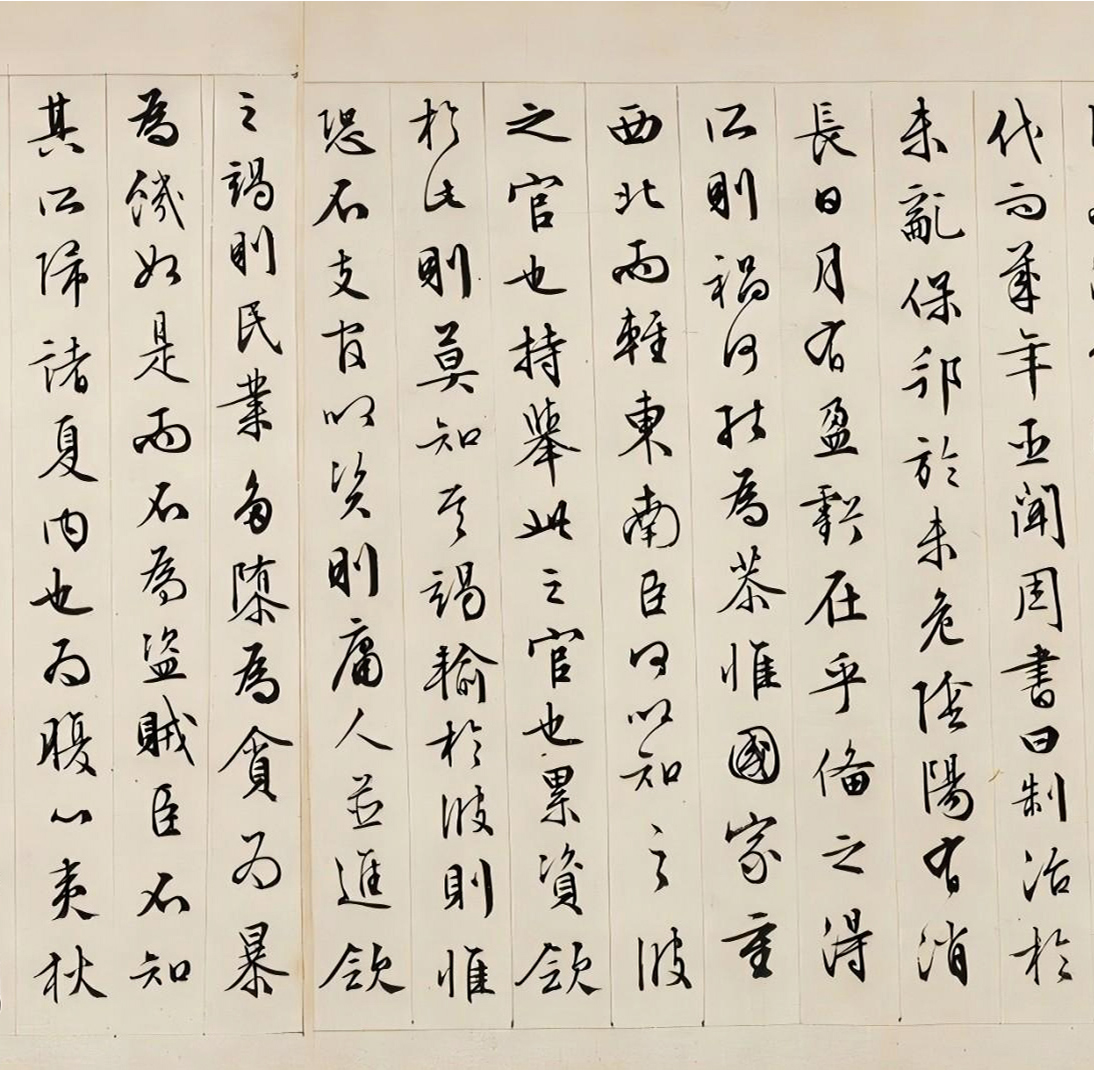 代而萬年臣聞周書曰制治於
未亂保邦於未危陰陽有消
長日月有盈虧在乎備之得
所則禍何能為恭惟國家重
西北而輕東南臣何以知之彼
之官也特舉此之官也累資歛
於此則莫知其竭輸於彼則惟
恐不支官以資則庸人並進歛
之竭則民業多隳為貪為暴
為饑如是而不為盜賊臣不知
其所歸諸夏內也為腹心夷狄